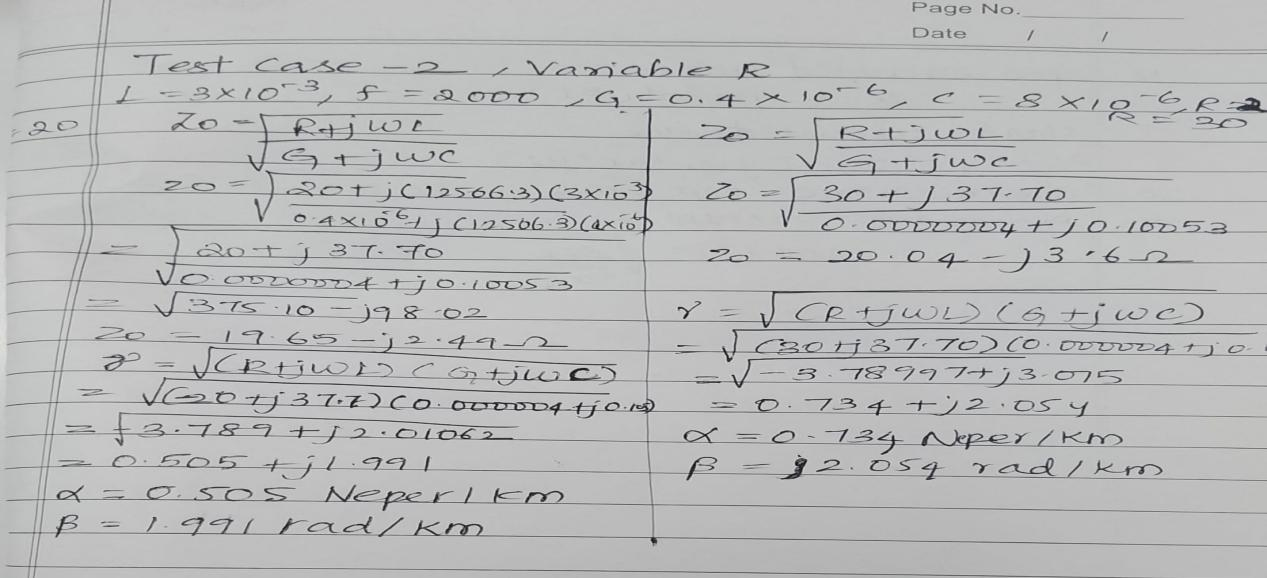 Page No.
Date / /
Test Case - 2, Variable R
L = 3×10⁻³, f = 2000, G = 0.4 × 10⁻⁶, C = 8 × 10⁻⁶, R = 20
R = 30
Z0 = √(R+jωL / G+jωC)
Z0 = √(20+j(12566.3)(3×10⁻³) / 0.4×10⁻⁶+j(12566.3)
= √(20+j37.70 / 0.0000004+j0.10053)
= √375.10-j98.02
Z0 = 19.65-j2.49Ω
γ = √(R+jωL)(G+jωC)
= √(20+j37.7)(0.000004+j0.10)
= √3.789+j2.01062
= 0.505+j1.991
α = 0.505 Neper/km
β = 1.991 rad/km
Z0 = √(R+jωL / G+jωC)
Z0 = √(30+j37.70 / 0.0000004+j0.10053)
Z0 = 20.04-j3.6Ω
γ = √(R+jωL)(G+jωC)
= √(30+j37.70)(0.000004+j0.
= √-3.78997+j3.015
= 0.734+j2.054
α = 0.734 Neper/km
β = j2.054 rad/km